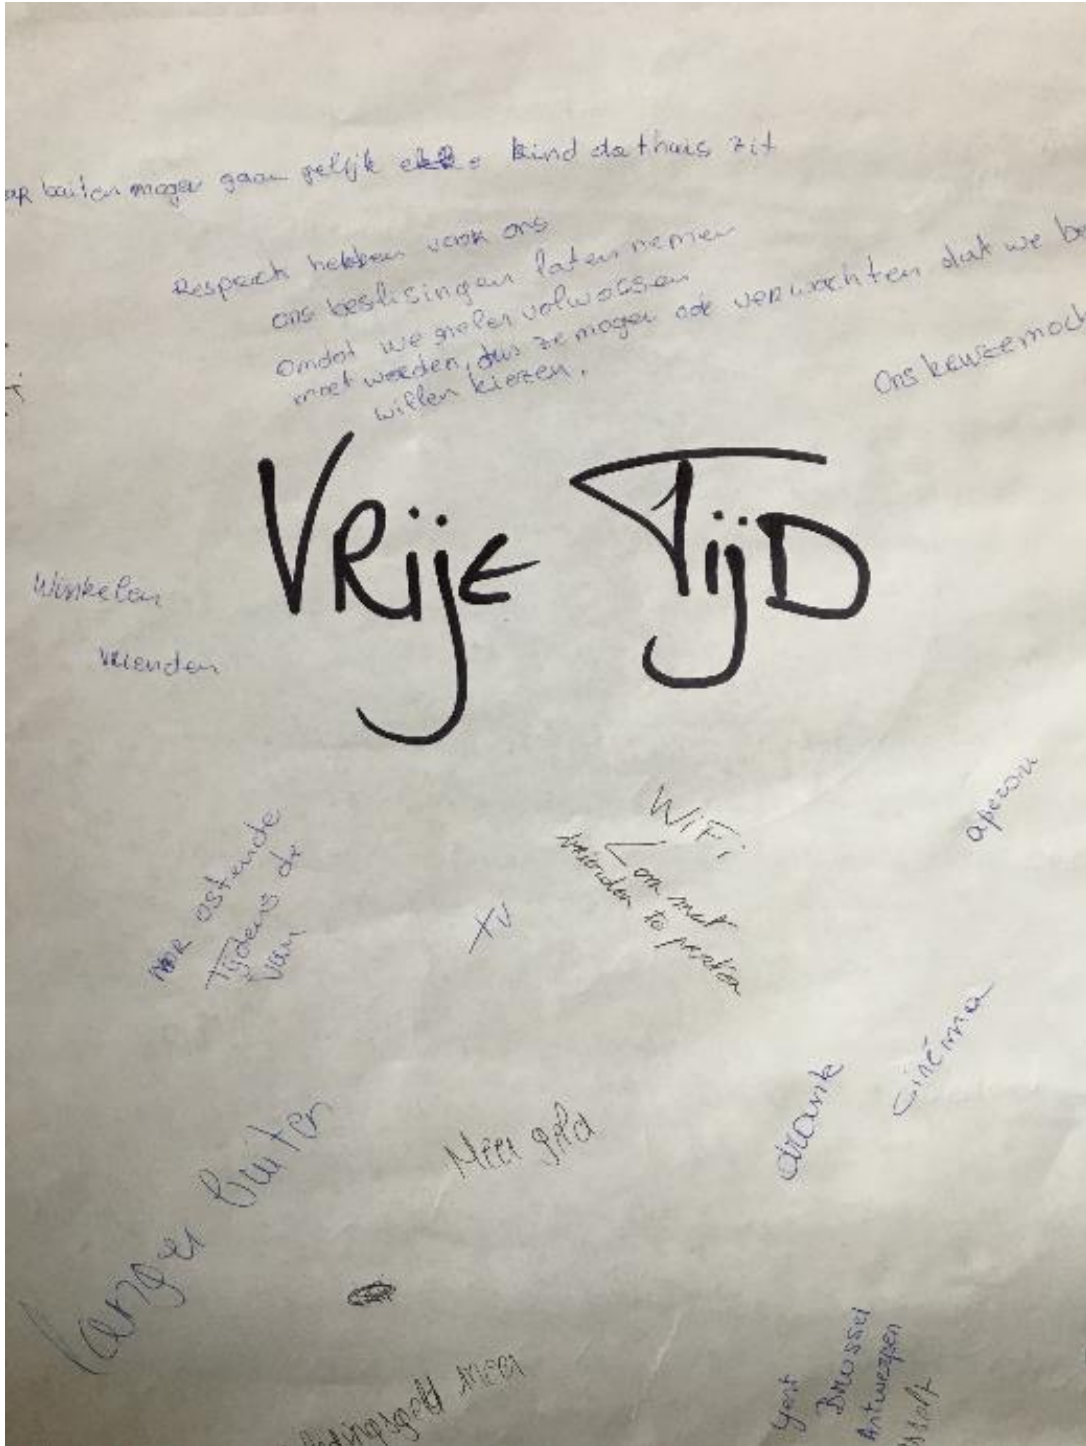 buiten mogen gaan gelijk elke kind dat huis zit
Respeck hebben voor ons
ons beslisingen laten nemen
omdat we sneler volwassen
moet worden, dus ze mogen ook verwachten dat we be
willen kiezen.
Ons keuze
VRije TijD
Winkelen
vrienden
WiFi
om met
vrienden te praten
aperow
nor ostende
Tijdens de
van
TV
cinéma
drank
Meer geld
langer buiten
meer
Gent
Brussel
Antwerpen